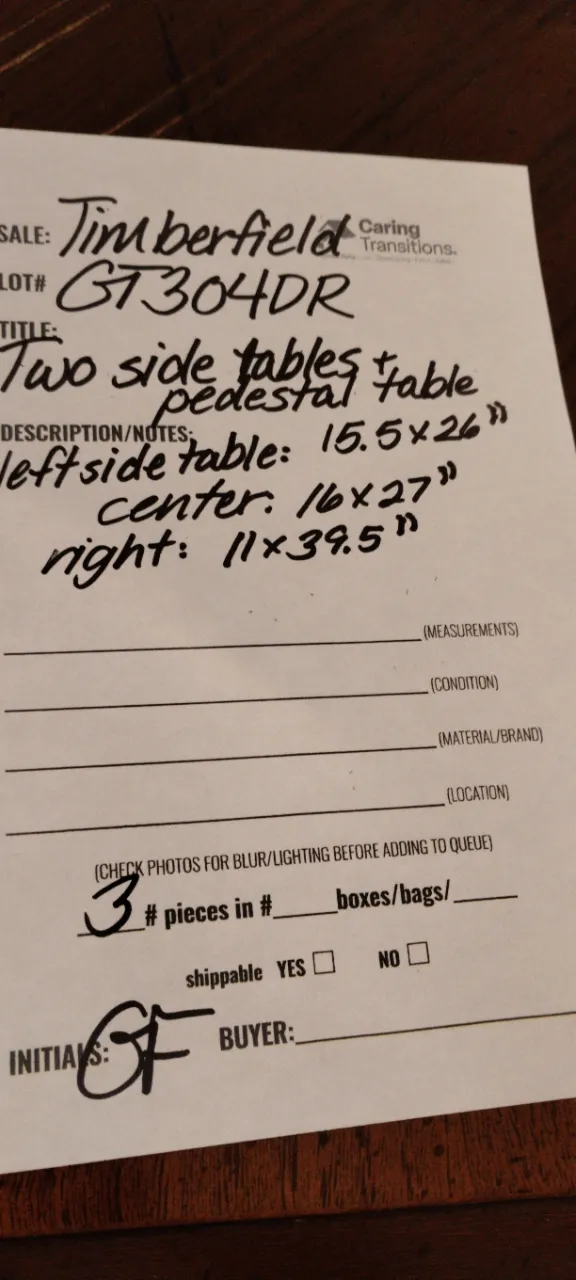 SALE: Timberfield
Caring
Transitions.
LOT# GT304DR
TITLE:
Two side tables +
pedestal table
DESCRIPTION/NOTES:
left side table: 15.5 x 26"
center: 16 x 27"
right: 11 x 39.5"
(MEASUREMENTS)
(CONDITION)
(MATERIAL/BRAND)
(LOCATION)
(CHECK PHOTOS FOR BLUR/LIGHTING BEFORE ADDING TO QUEUE)
3 # pieces in #_____boxes/bags/_____
shippable YES ☐ NO ☐
INITIALS: GF BUYER: